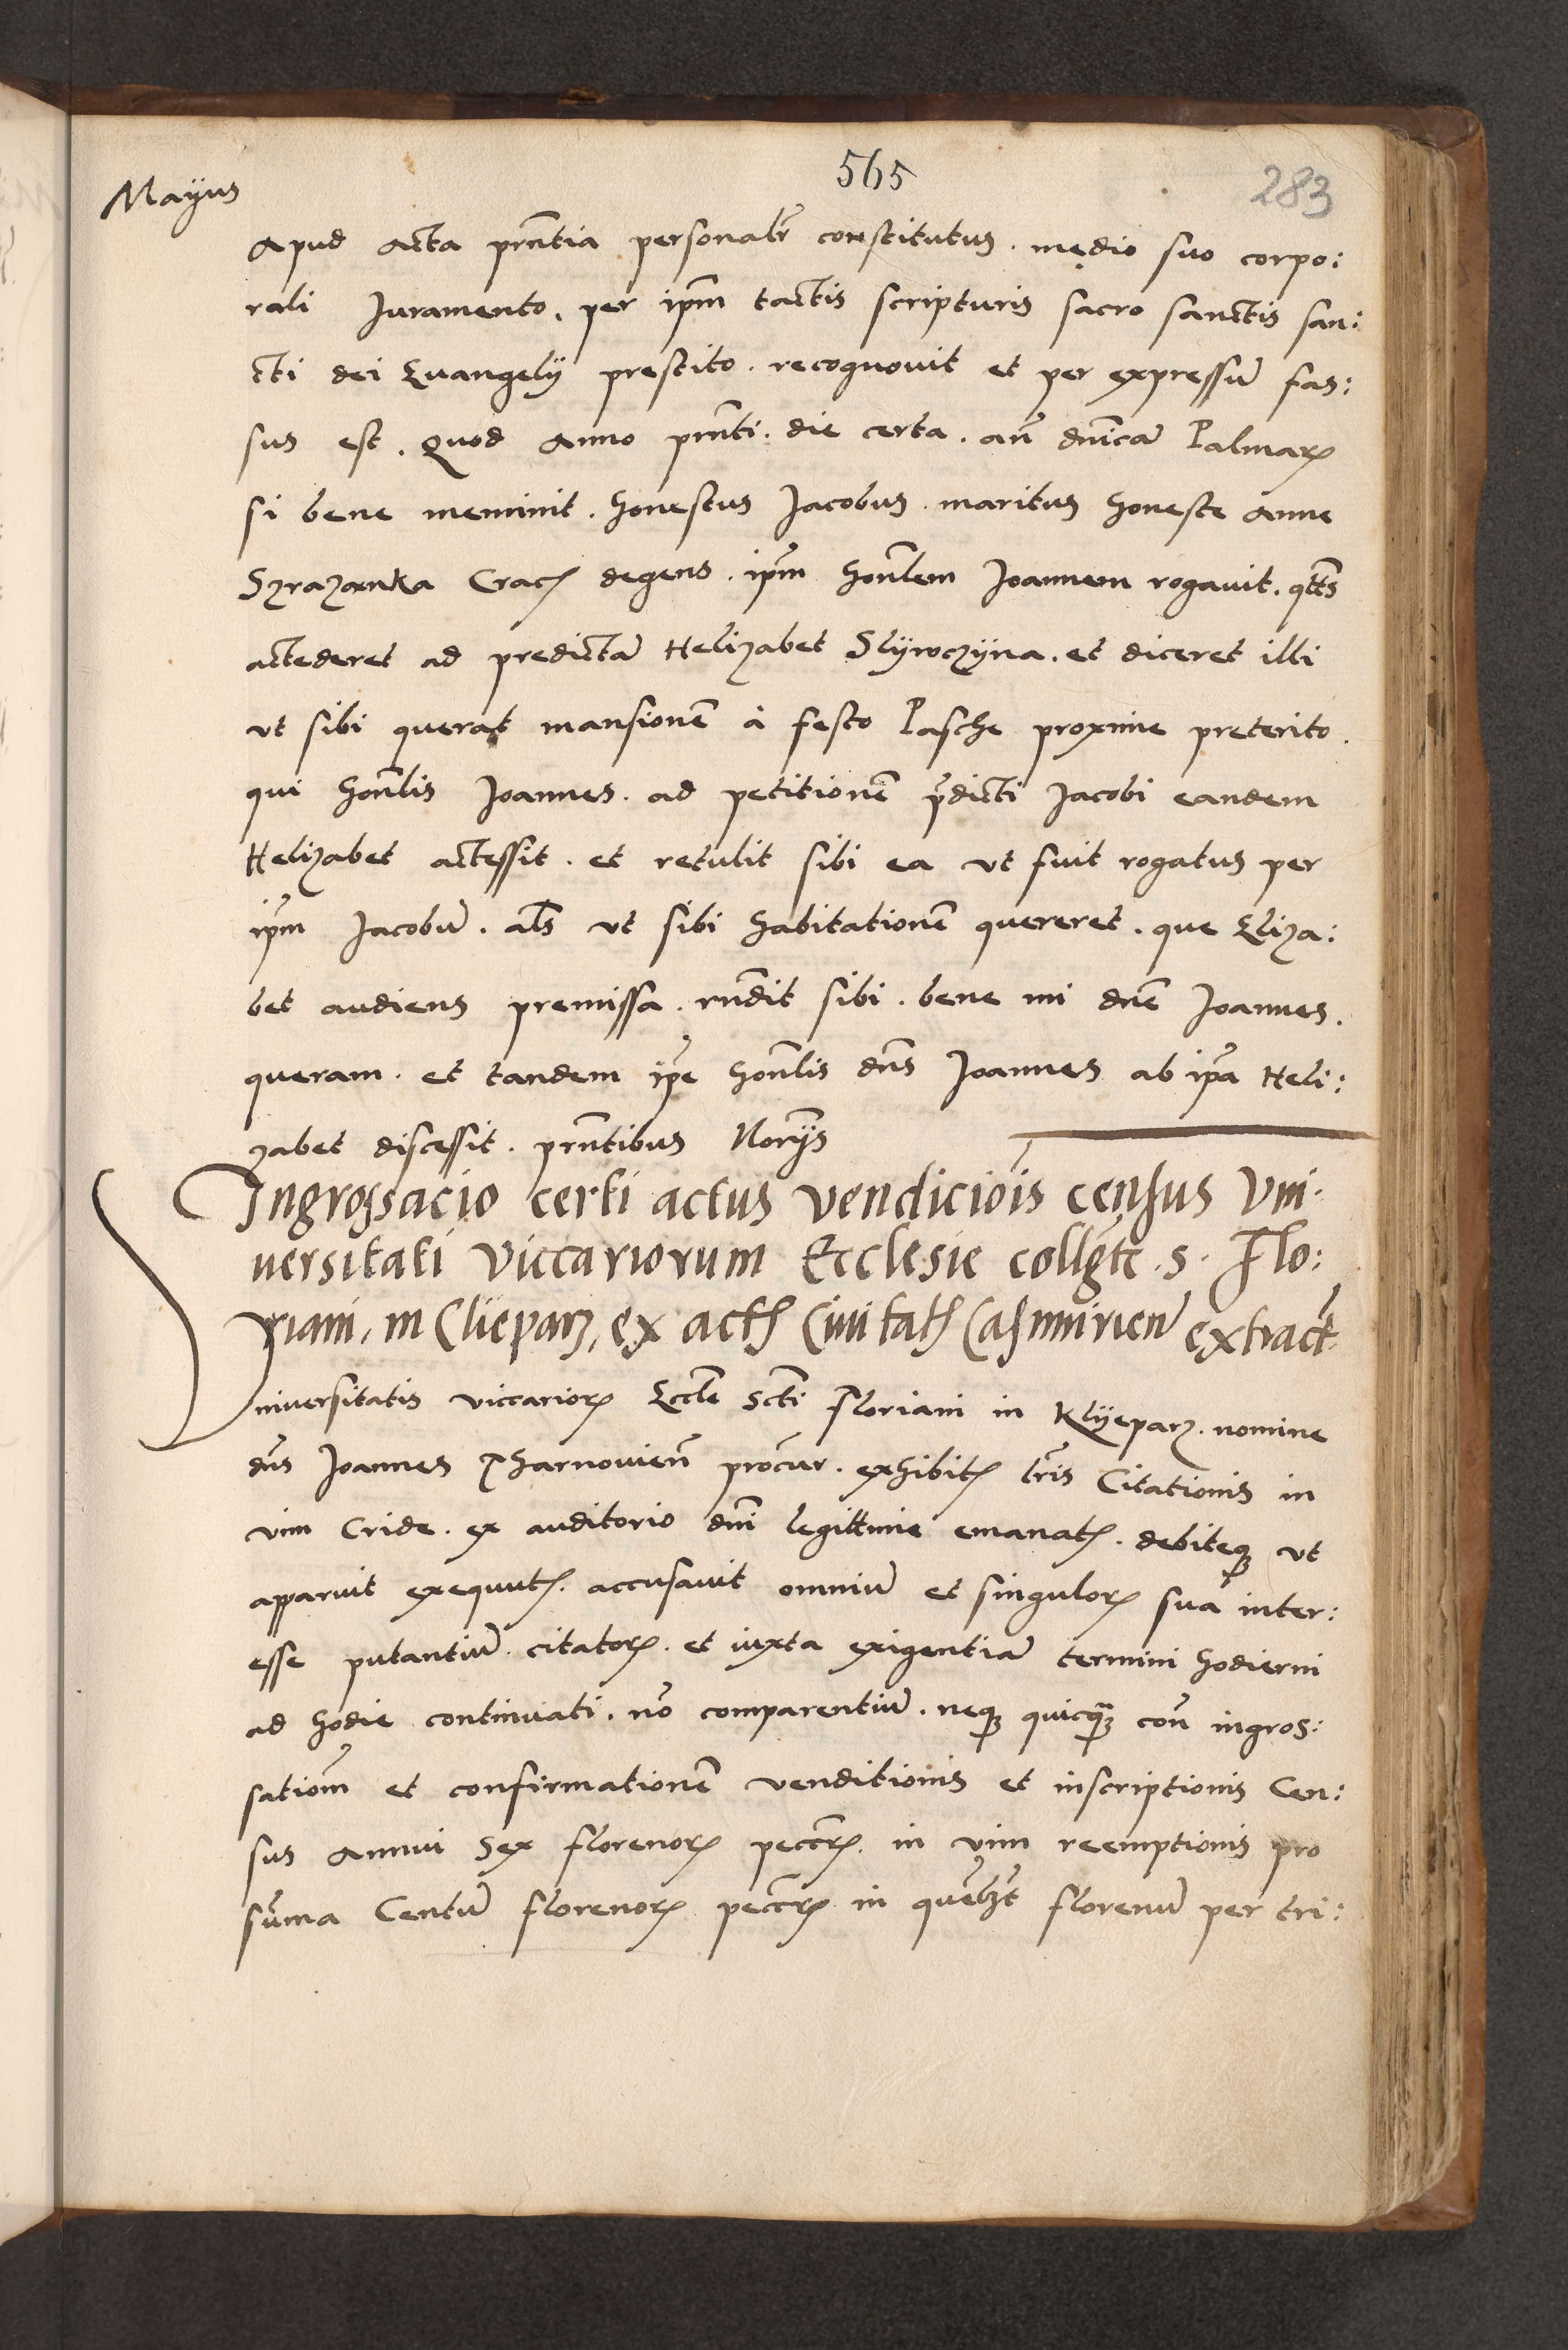 565
283
Mayus
Apud Acta pñtia personalr̃ constitutus. medio suo corpo:
rali Juramento. per ip̃m tactis scripturis sacro sanctis san:
cti dei Euangelÿ prestito. recognouit et per expressũ fas:
sus est. Quod Anno pñti. die certa. añ dñicã Palmarꝝ
si bene meminit. honestus Jacobus. maritus honeste Anne
Szrazanka Cracꝭ degens. ip̃m hoñlem Joannem rogauit. qt̃s
accederet ad predictã Helizabet Slÿwczÿna. et diceret illi
vt sibi querat mansionẽ à festo Pasche proxime preterito.
qui hoñlis Joannes. ad petitionẽ p̃dicti Jacobi eandem
Helizabet accessit. et retulit sibi ea vt fuit rogatus per
ip̃m Jacobũ. al̃s vt sibi habitationẽ quereret. que Eliza:
bet audiens premissa. rñdit sibi. bene mi dñe Joannes.
queram. et tandem ip̃e hoñlis dñs Joannes ab ip̃a Heli:
zabet discessit. pñtibus Norÿs
Ingrossacio certi actus vendiciõis census vni-
uersitati viccariorum Ecclesie collg̃te. S. Flo:
riani, in Clieparz, ex actꝭ Ciuitatꝭ Casmirien̄ extract̃.
Vniuersitatis viccariorꝝ Eccl̃e Scti Floriani in Klÿeparz. nomine
dñs Joannes Tharnouieñ procur. exhibitꝭ lr̃is Citationis in
vim Cride. ex auditorio dñi legittime emanatꝭ. debiteqꝫ vt
apparuit exequutꝭ. accusauit omniũ et singulorꝝ sua inter:
esse putantiũ. citatorꝝ. et iuxta exigentiã termini hodierni
ad hodie continuati. nõ comparentiũ. neqꝫ quicqꝫ coñ ingros:
satiom̃ et confirmationẽ venditionis et inscriptionis Cen:
sus Annui Sex florenorꝝ pecc̃rꝝ. in vim reemptionis pro
sum̃a Centũ florenorꝝ pecc̃rꝝ in quẽlꝫt florenũ per tri: